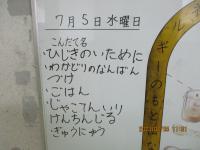 7月5日水曜日
こんだて名
ひじきのいために
わかどりのなんばん
づけ
ごはん
じゃこてんいり
けんちんじる
ぎゅうにゅう
ルギーのもと